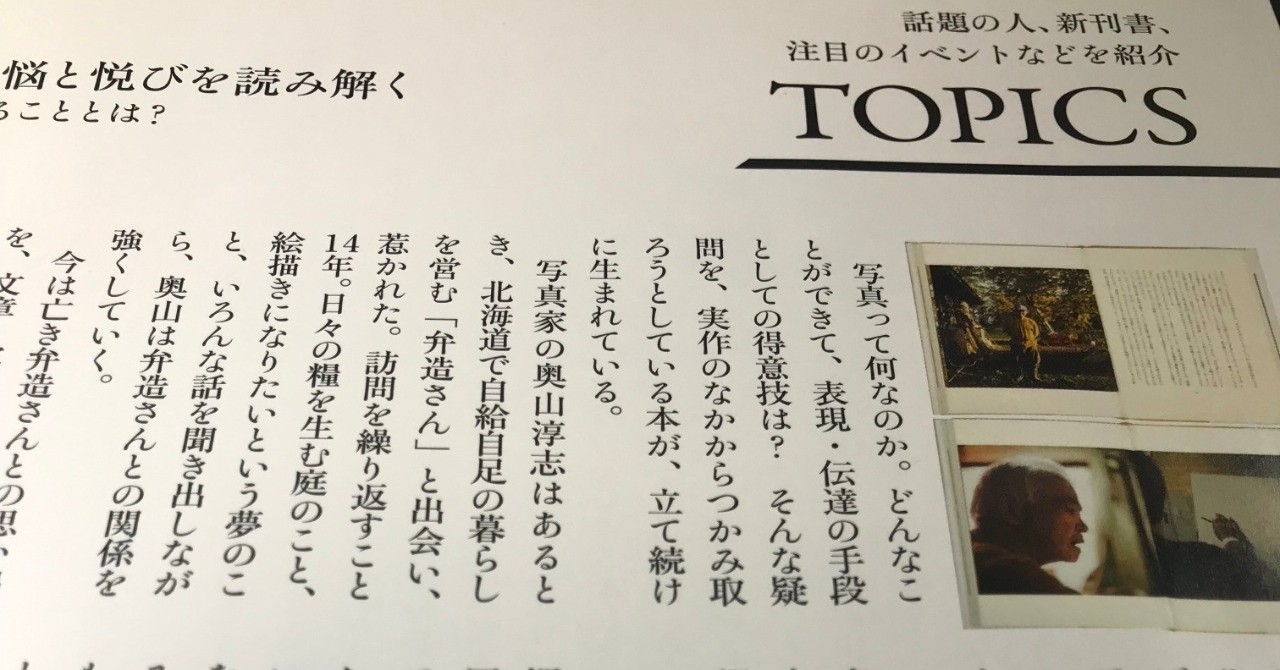 話題の人、新刊書、
注目のイベントなどを紹介
TOPICS
悩と悦びを読み解く
ることとは？
写真って何なのか。どんなこ
とができて、表現・伝達の手段
としての得意技は？　そんな疑
問を、実作のなかからつかみ取
ろうとしている本が、立て続け
に生まれている。
写真家の奥山淳志はあると
き、北海道で自給自足の暮らし
を営む「弁造さん」と出会い、
惹かれた。訪問を繰り返すこと
14年。日々の糧を生む庭のこと、
絵描きになりたいという夢のこ
と、いろんな話を聞き出しなが
ら、奥山は弁造さんとの関係を
強くしていく。
今は亡き弁造さんとの思い
を、文章